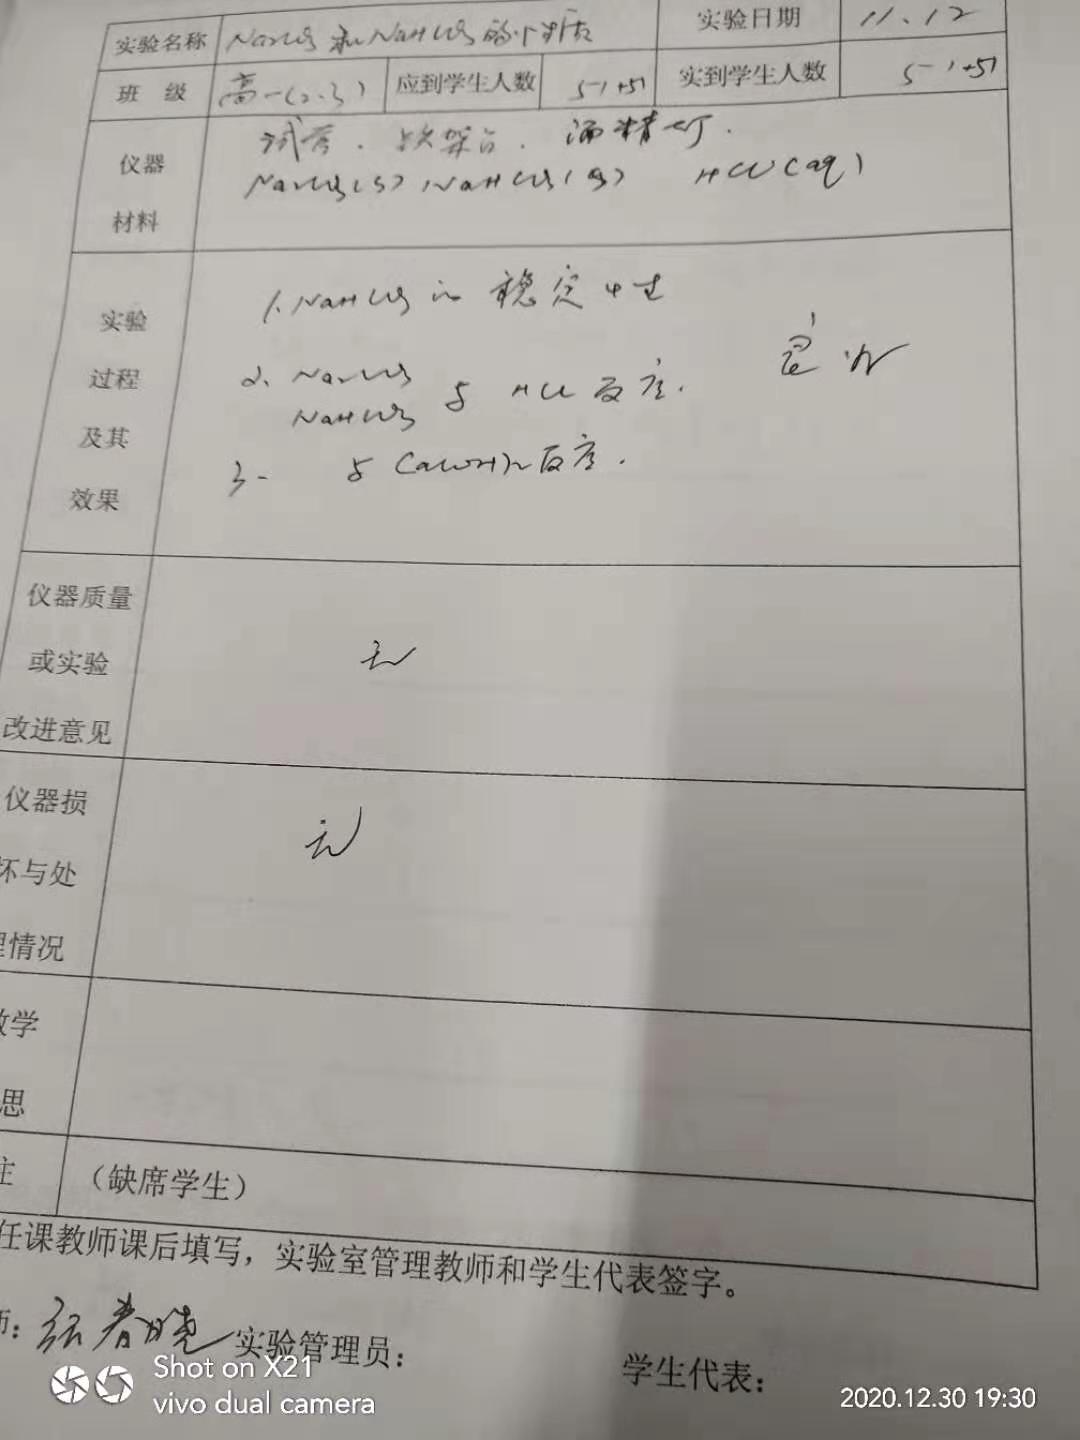 实验名称 Na2CO3和NaHCO3的性质 实验日期 11.12
班 级 高一(2.3) 应到学生人数 51+51 实到学生人数 51+51
仪器
材料
试管. 铁架台. 酒精灯.
Na2CO3(s) NaHCO3(s) HCl(aq)
实验
过程
及其
效果
1. NaHCO3的稳定性
2. Na2CO3
NaHCO3 与 HCl 反应.
良好
3. 与Ca(OH)2反应.
仪器质量
或实验
改进意见
无
仪器损
坏与处
理情况
无
教学
思
注
(缺席学生)
任课教师课后填写，实验室管理教师和学生代表签字。
师: 张春晓 实验管理员:
学生代表:
Shot on X21
vivo dual camera
2020.12.30 19:30